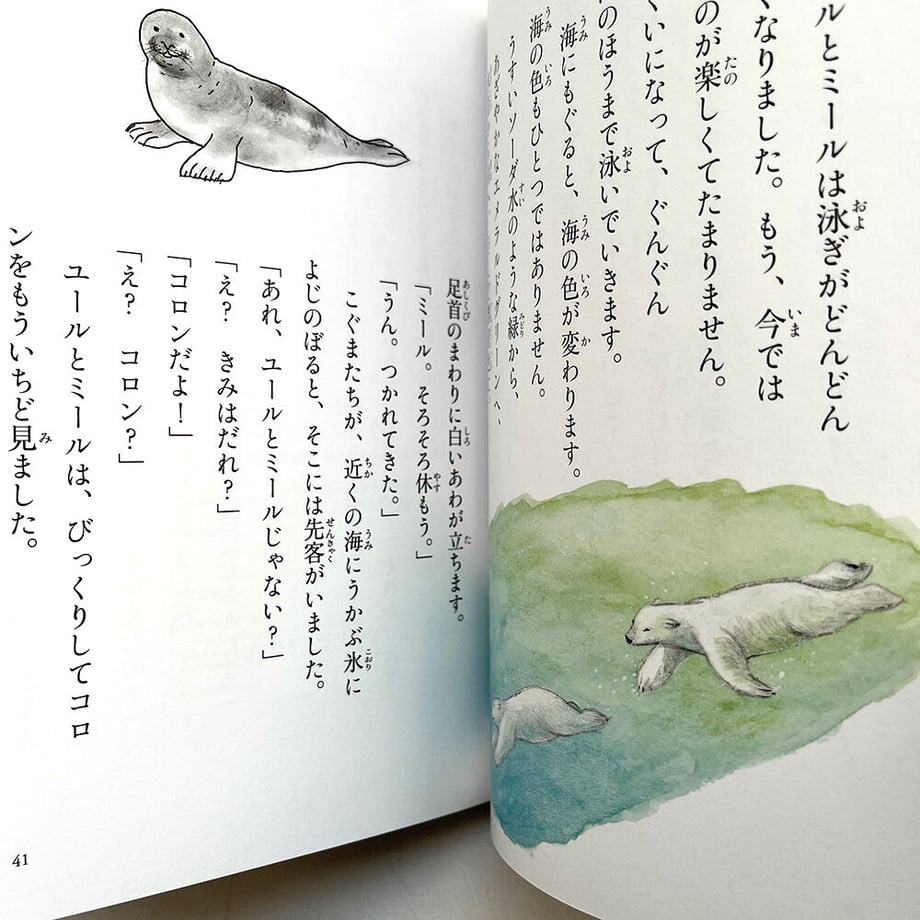 ルとミールは泳ぎがどんどん
くなりました。もう、今では
のが楽しくてたまりません。
くいになって、ぐんぐん
のほうまで泳いでいきます。
海にもぐると、海の色が変わります。
海の色もひとつではありません。
うすいソーダ水のような緑から、
あざやかなエメラルドグリーンへ、
足首のまわりに白いあわが立ちます。
「ミール。そろそろ休もう。」
「うん。つかれてきた。」
こぐまたちが、近くの海にうかぶ氷に
よじのぼると、そこには先客がいました。
「あれ、ユールとミールじゃない?」
「え? きみはだれ?」
「コロンだよ!」
「え? コロン?」
ユールとミールは、びっくりしてコロ
ンをもういちど見ました。
41